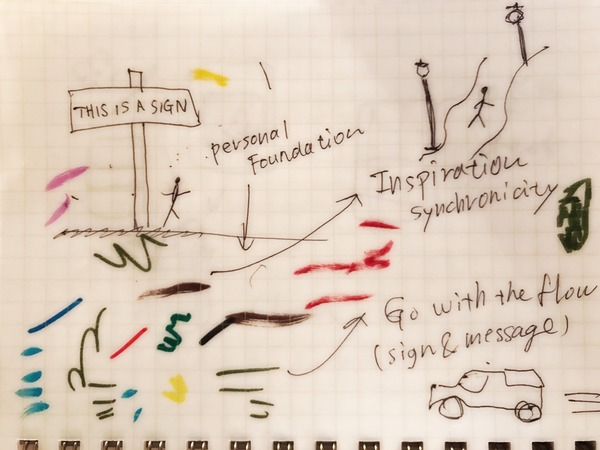 THIS IS A SIGN
personal
Foundation
Inspiration
synchronicity
Go with the flow
(sign & message)